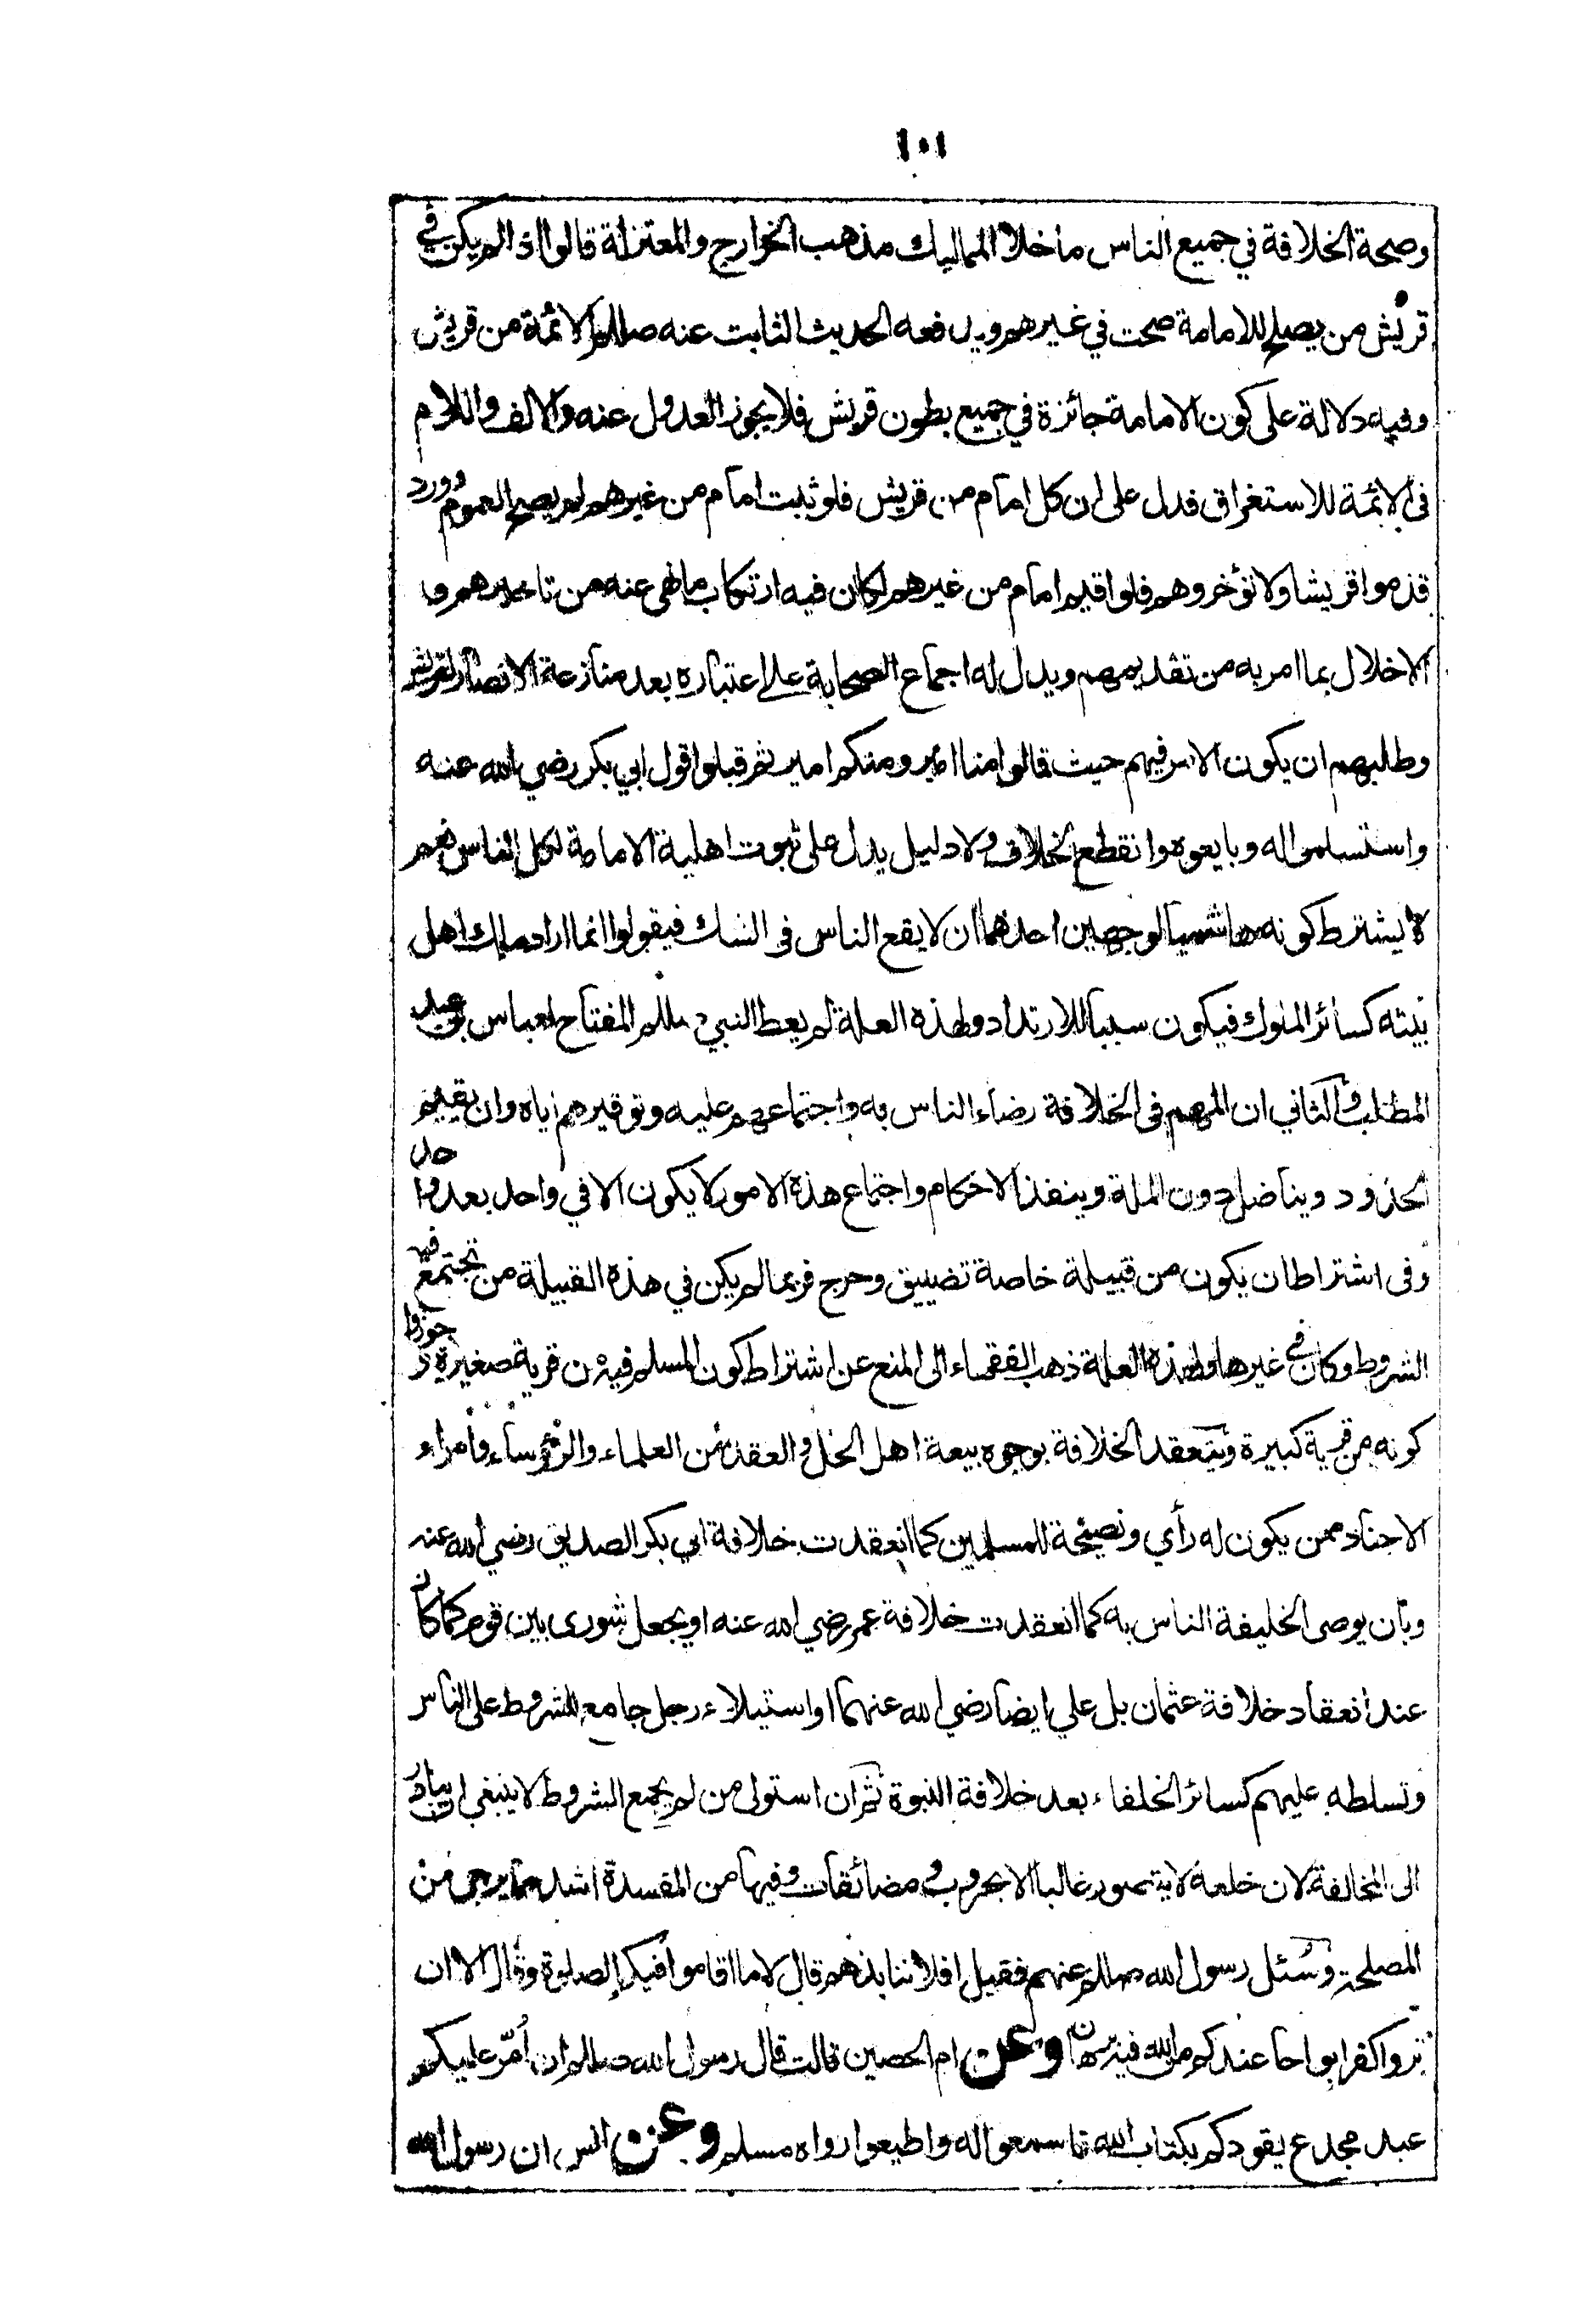 ١٠١
وصحة الخلافة في جميع الناس ما خلا المماليك مذهب الخوارج والمعتزلة قالوا اذا لم يكن في
قريش من يصلح للامامة صحت في غيرهم ويدفعه الحديث الثابت عنه صللم الائمة من قريش
وفيه دلالة على كون الامامة جائزة في جميع بطون قريش فلا يجوز العدول عنه والالف واللام
في الائمة للاستغراق فدل على ان كل امام من قريش فلو ثبت امام من غيرهم لم يصح العموم وورد
قدموا قريشا ولا تؤخروهم فلو اقيم امام من غيرهم لكان فيه ارتكاب ما نهى عنه من تاخيرهم و
الاخلال بما امر به من تقديمهم ويدل له اجماع الصحابة على اعتباره بعد منازعة الانصار لقريش
وطلبهم ان يكون الامر فيهم حيث قالوا منا امير ومنكم امير ثم قبلوا قول ابي بكر رضي الله عنه
واستسلموا له وبايعوه وانقطع الخلاف ولا دليل يدل على ثبوت اهلية الامامة لكل الناس نعم
لا يشترط كونه هاشميا لوجهين احدهما ان لا يقع الناس في الشك فيقولوا انما اراد ملك اهل
بيته كسائر الملوك فيكون سببا للارتداد ولهذه العلة لم يعط النبي صللم المفتاح لعباس بن عبد
المطلب والثاني ان المهم في الخلافة رضاء الناس به واجتماعهم عليه وتوقيرهم اياه وان يقيم
الحدود ويناضل دون الملة وينفذ الاحكام واجتماع هذه الامور لا يكون الا في واحد بعد واحد
وفي اشتراط ان يكون من قبيلة خاصة تضييق وحرج فربما لم يكن في هذه القبيلة من تجتمع فيه
الشروط وكان في غيرها ولهذه العلة ذهب الفقهاء الى المنع عن اشتراط كون المسلم فيه من قرية صغيرة وجوزوا
كونه من قرية كبيرة وينعقد الخلافة بوجوه بيعة اهل الحل والعقد من العلماء والرؤساء وأمراء
الاجناد ممن يكون له رأي ونصيحة للمسلمين كما انعقدت خلافة ابي بكر الصديق رضي الله عنه
وبأن يوصى الخليفة الناس به كما انعقدت خلافة عمر رضي الله عنه او يجعل شورى بين قوم كما كان
عند انعقاد خلافة عثمان بل علي ايضا رضي الله عنهما او استيلاء رجل جامع للشروط على الناس
وتسلطه عليهم كسائر الخلفاء بعد خلافة النبوة ثم ان استولى من لم يجمع الشروط لا ينبغي ان يبادر
الى المخالفة لان خلعه لا يتصور غالبا الا بحروب ومضائقات وفيها من المفسدة اشد مما يرجى من
المصلحة وسُئل رسول الله صللم عنهم فقيل افلا ننابذهم قال لا ما اقاموا فيكم الصلوة وقال الا ان
تروا كفرا بواحا عندكم من الله فيه برهان وعن ام الحصين قالت قال رسول الله صللم ان أُمّر عليكم
عبد مجدع يقودكم بكتاب الله فاسمعوا له واطيعوا رواه مسلم وعن انس ان رسول الله